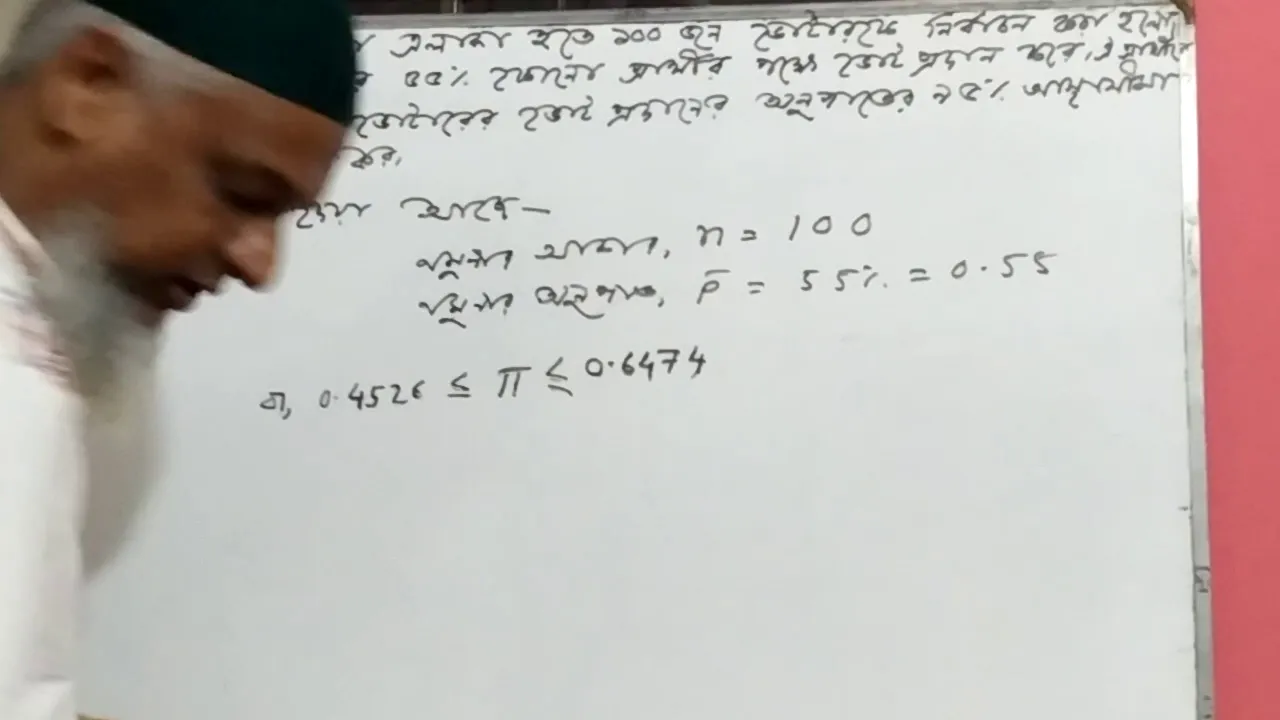 এলাকা হতে ১০০ জন ভোটারকে নির্বাচন করা হলো
৫৫% কোনো প্রার্থীর পক্ষে ভোট প্রদান করে, ঐ প্রার্থীর
ভোটারের ভোট প্রদানের অনুপাতের ৯৫% আস্থাসীমা
কর।
দেয়া আছে—
নমুনার আকার, n = 100
নমুনার অনুপাত, p̄ = 55% = 0.55
বা, 0.4526 ≤ π ≤ 0.6474